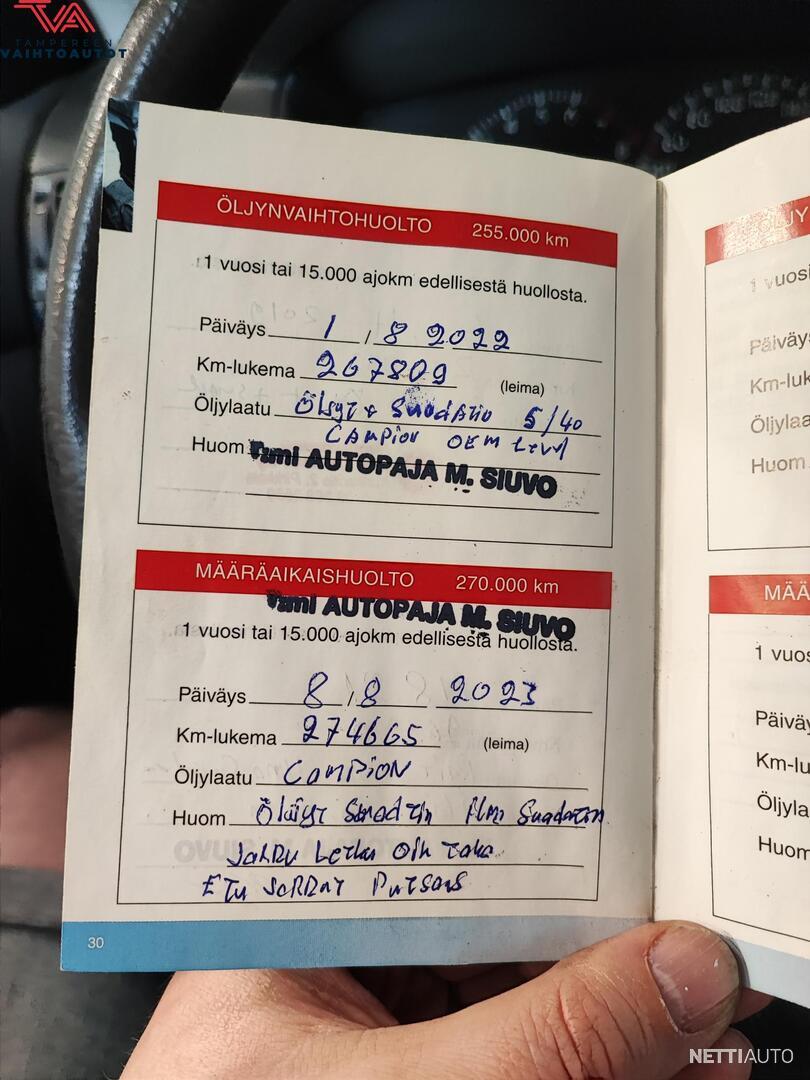 TAMPEREEN
VAIHTOAUTOT
ÖLJYNVAIHTOHUOLTO 255.000 km
1 vuosi tai 15.000 ajokm edellisestä huollosta.
Päiväys 1 , 8 2022
Km-lukema 267809 (leima)
Öljylaatu Öljyt + Suodatin 5/40
CAMPION OEM Level
Huom
Tmi AUTOPAJA M. SIUVO
MÄÄRÄAIKAISHUOLTO 270.000 km
Tmi AUTOPAJA M. SIUVO
1 vuosi tai 15.000 ajokm edellisestä huollosta.
Päiväys 8 , 8 2023
Km-lukema 274665 (leima)
Öljylaatu CAMPION
Huom Öljyt Suodatin Ilma Suodatin
Jarru Letku Oik Taka
Etu Jarrut Putsaus
30
ÖLJY
1 vuosi
Päiväys
Km-luk
Öljylaa
Huom
MÄÄ
1 vuos
Päiväy
Km-lu
Öljyla
Huom
NETTIAUTO